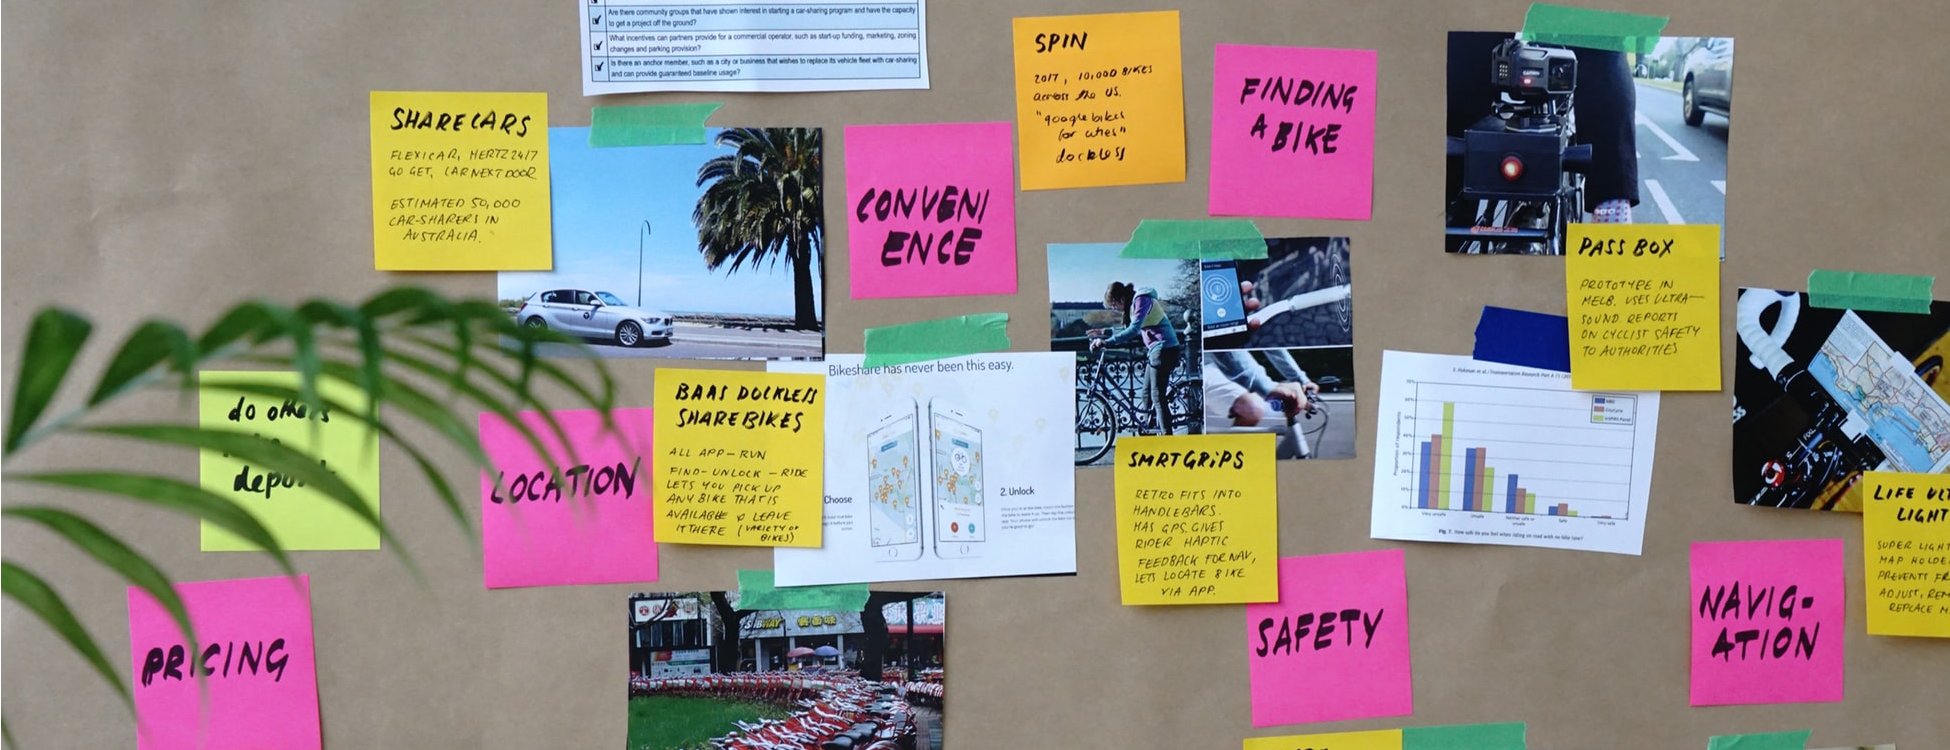 Are there community groups that have shown interest in starting a car-sharing program and have the capacity
to get a project off the ground?
What incentives can partners provide for a commercial operator, such as start-up funding, marketing, zoning
changes and parking provision?
Is there an anchor member, such as a city or business that wishes to replace its vehicle fleet with car-sharing
and can provide guaranteed baseline usage?
SHARECARS
FLEXICAR, HERTZ 24/7
GO GET, CAR NEXT DOOR
ESTIMATED 50,000
CAR-SHARERS IN
AUSTRALIA.
CONVENI
ENCE
SPIN
2017, 10,000 BIKES
across the US.
"google bikes
for cities"
dockless
FINDING
A BIKE
PASS BOX
PROTOTYPE IN
MELB. USES ULTRA-
SOUND. REPORTS
ON CYCLIST SAFETY
TO AUTHORITIES
do others
LOCATION
BAAS DOCKLESS
SHAREBIKES
ALL APP-RUN
FIND-UNLOCK-RIDE
LETS YOU PICK UP
ANY BIKE THAT IS
AVAILABLE & LEAVE
IT THERE (VARIETY OF
BIKES)
Bikeshare has never been this easy.
Choose
2. Unlock
SMRTGRiPS
RETRO FITS INTO
HANDLEBARS.
HAS GPS. GIVES
RIDER HAPTIC
FEEDBACK FOR NAV,
LETS LOCATE BIKE
VIA APP.
Proportion of respondents
Very unsafe
Unsafe
Neither safe or
unsafe
Safe
Very safe
Fig. 7. How safe do you feel when riding on road with no bike lane?
LIFE
LIGHT
SUPER LIGHT
MAP
PREVENTS
ADJUST,
REPLACE
PRICING
SUBWAY
SAFETY
NAVIG-
ATION